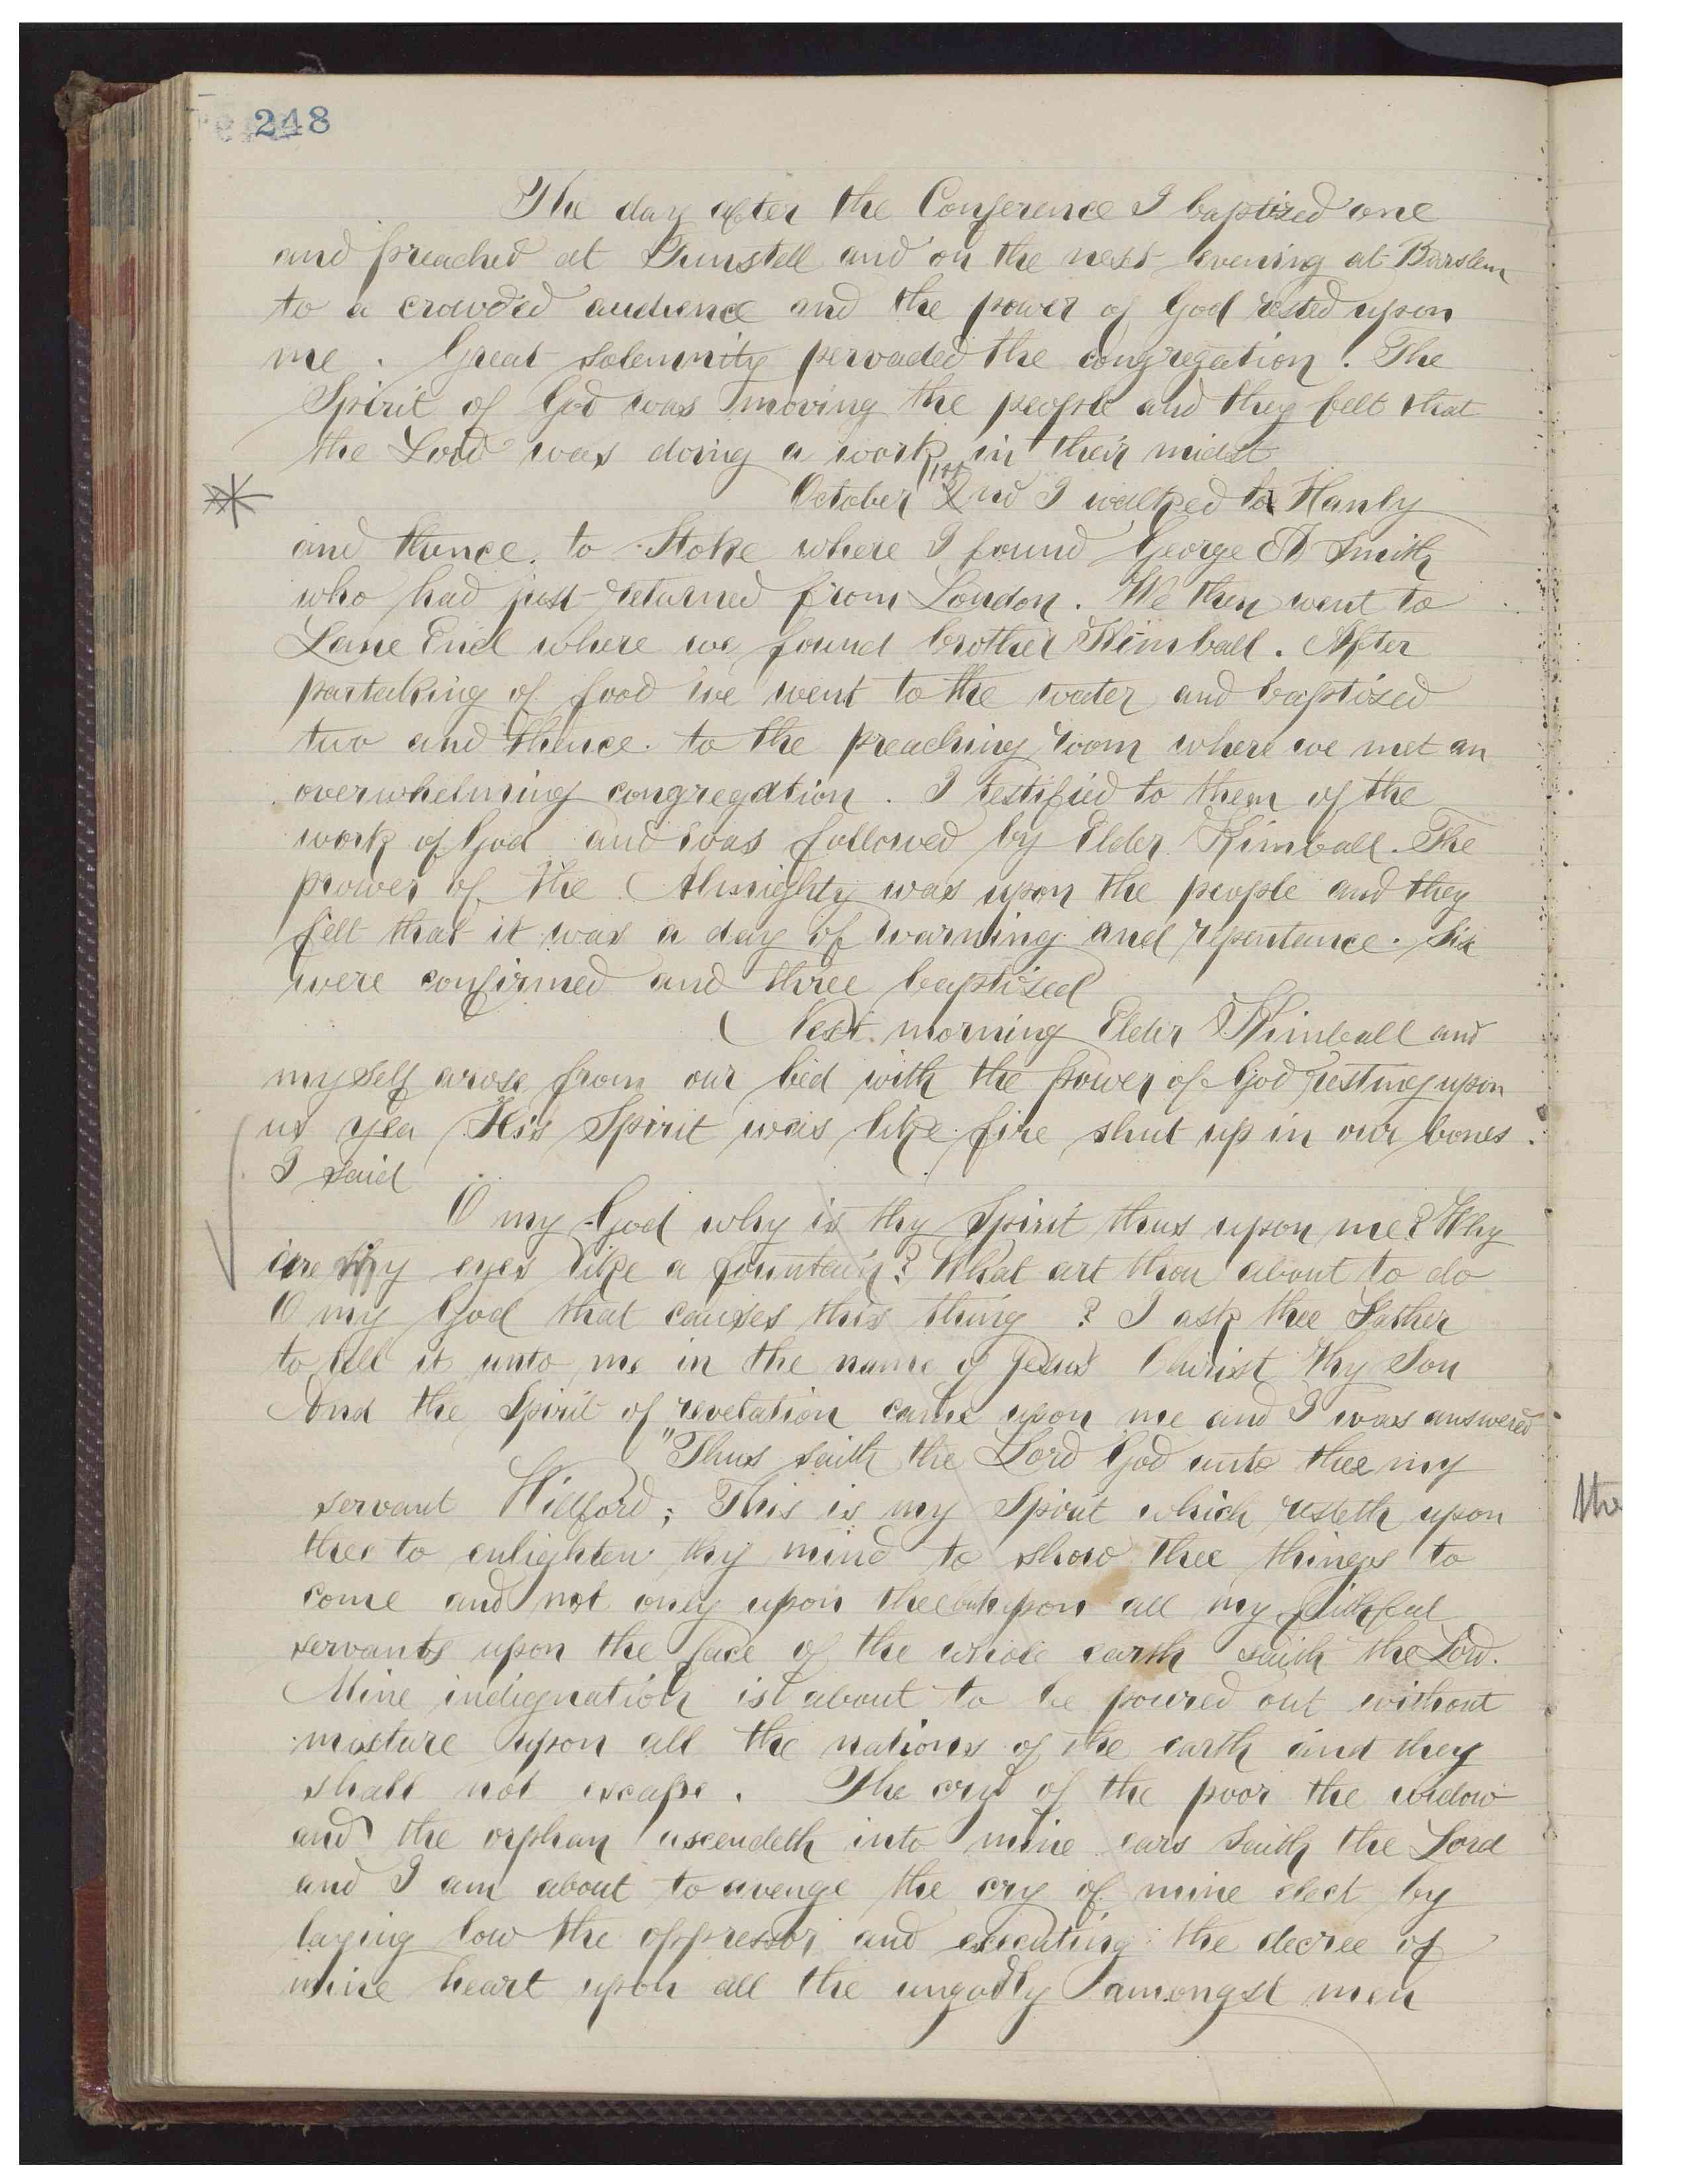 248
The day after the Conference I baptized one
and preached at Tunstell and on the next evening at Burslem
to a crowded audience and the power of God rested upon
me . Great solemnity pervaded the congregation . The
Spirit of God was moving the people and they felt that
the Lord was doing a work in their midst
1st
October 2nd I walked to Hanly
and thence to Stoke where I found George A Smith
who had just returned from London . We then went to
Lane End where we found brother Kimball . After
partaking of food we went to the water and baptized
two and thence to the preaching room where we met an
overwhelming congregation . I testified to them of the
work of God and was followed by Elder Kimball . The
power of the Almighty was upon the people and they
felt that it was a day of warning and repentance . Six
were confirmed and three baptized
Next morning Elder Kimball and
myself arose from our bed with the power of God resting upon
us yea His Spirit was like fire shut up in our bones .
I said
O my God why is thy Spirit thus upon me ? Why
are my eyes like a fountain ? What art thou about to do
O my God that causes this thing ? I ask thee Father
to tell it unto me in the name of Jesus Christ thy Son
And the Spirit of revelation came upon me and I was answered
"Thus saith the Lord God unto thee my
servant Wilford ; This is my Spirit which resteth upon
thee to enlighten thy mind to show thee things to
come and not only upon thee but upon all my faithful
servants upon the face of the whole earth saith the Lord .
Mine indignation is about to be poured out without
mixture upon all the nations of the earth and they
shall not escape . The cry of the poor the widow
and the orphan ascendeth into mine ears saith the Lord
and I am about to avenge the cry of mine elect by
laying low the oppressor and executing the decree of
mine heart upon all the ungodly amongst men
the